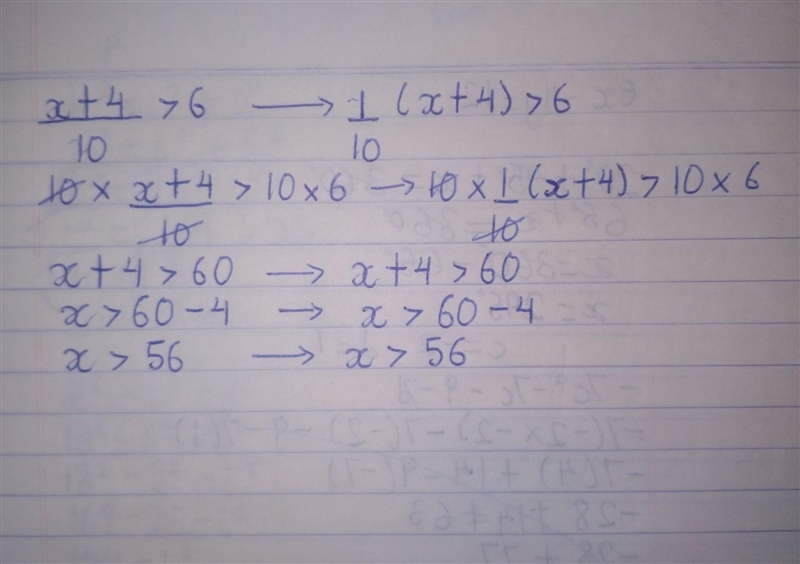 x+4/10 > 6 → 1/10 (x+4) > 6
10 × x+4/10 > 10×6 → 10 × 1/10 (x+4) > 10×6
x+4 > 60 → x+4 > 60
x > 60-4 → x > 60-4
x > 56 → x > 56